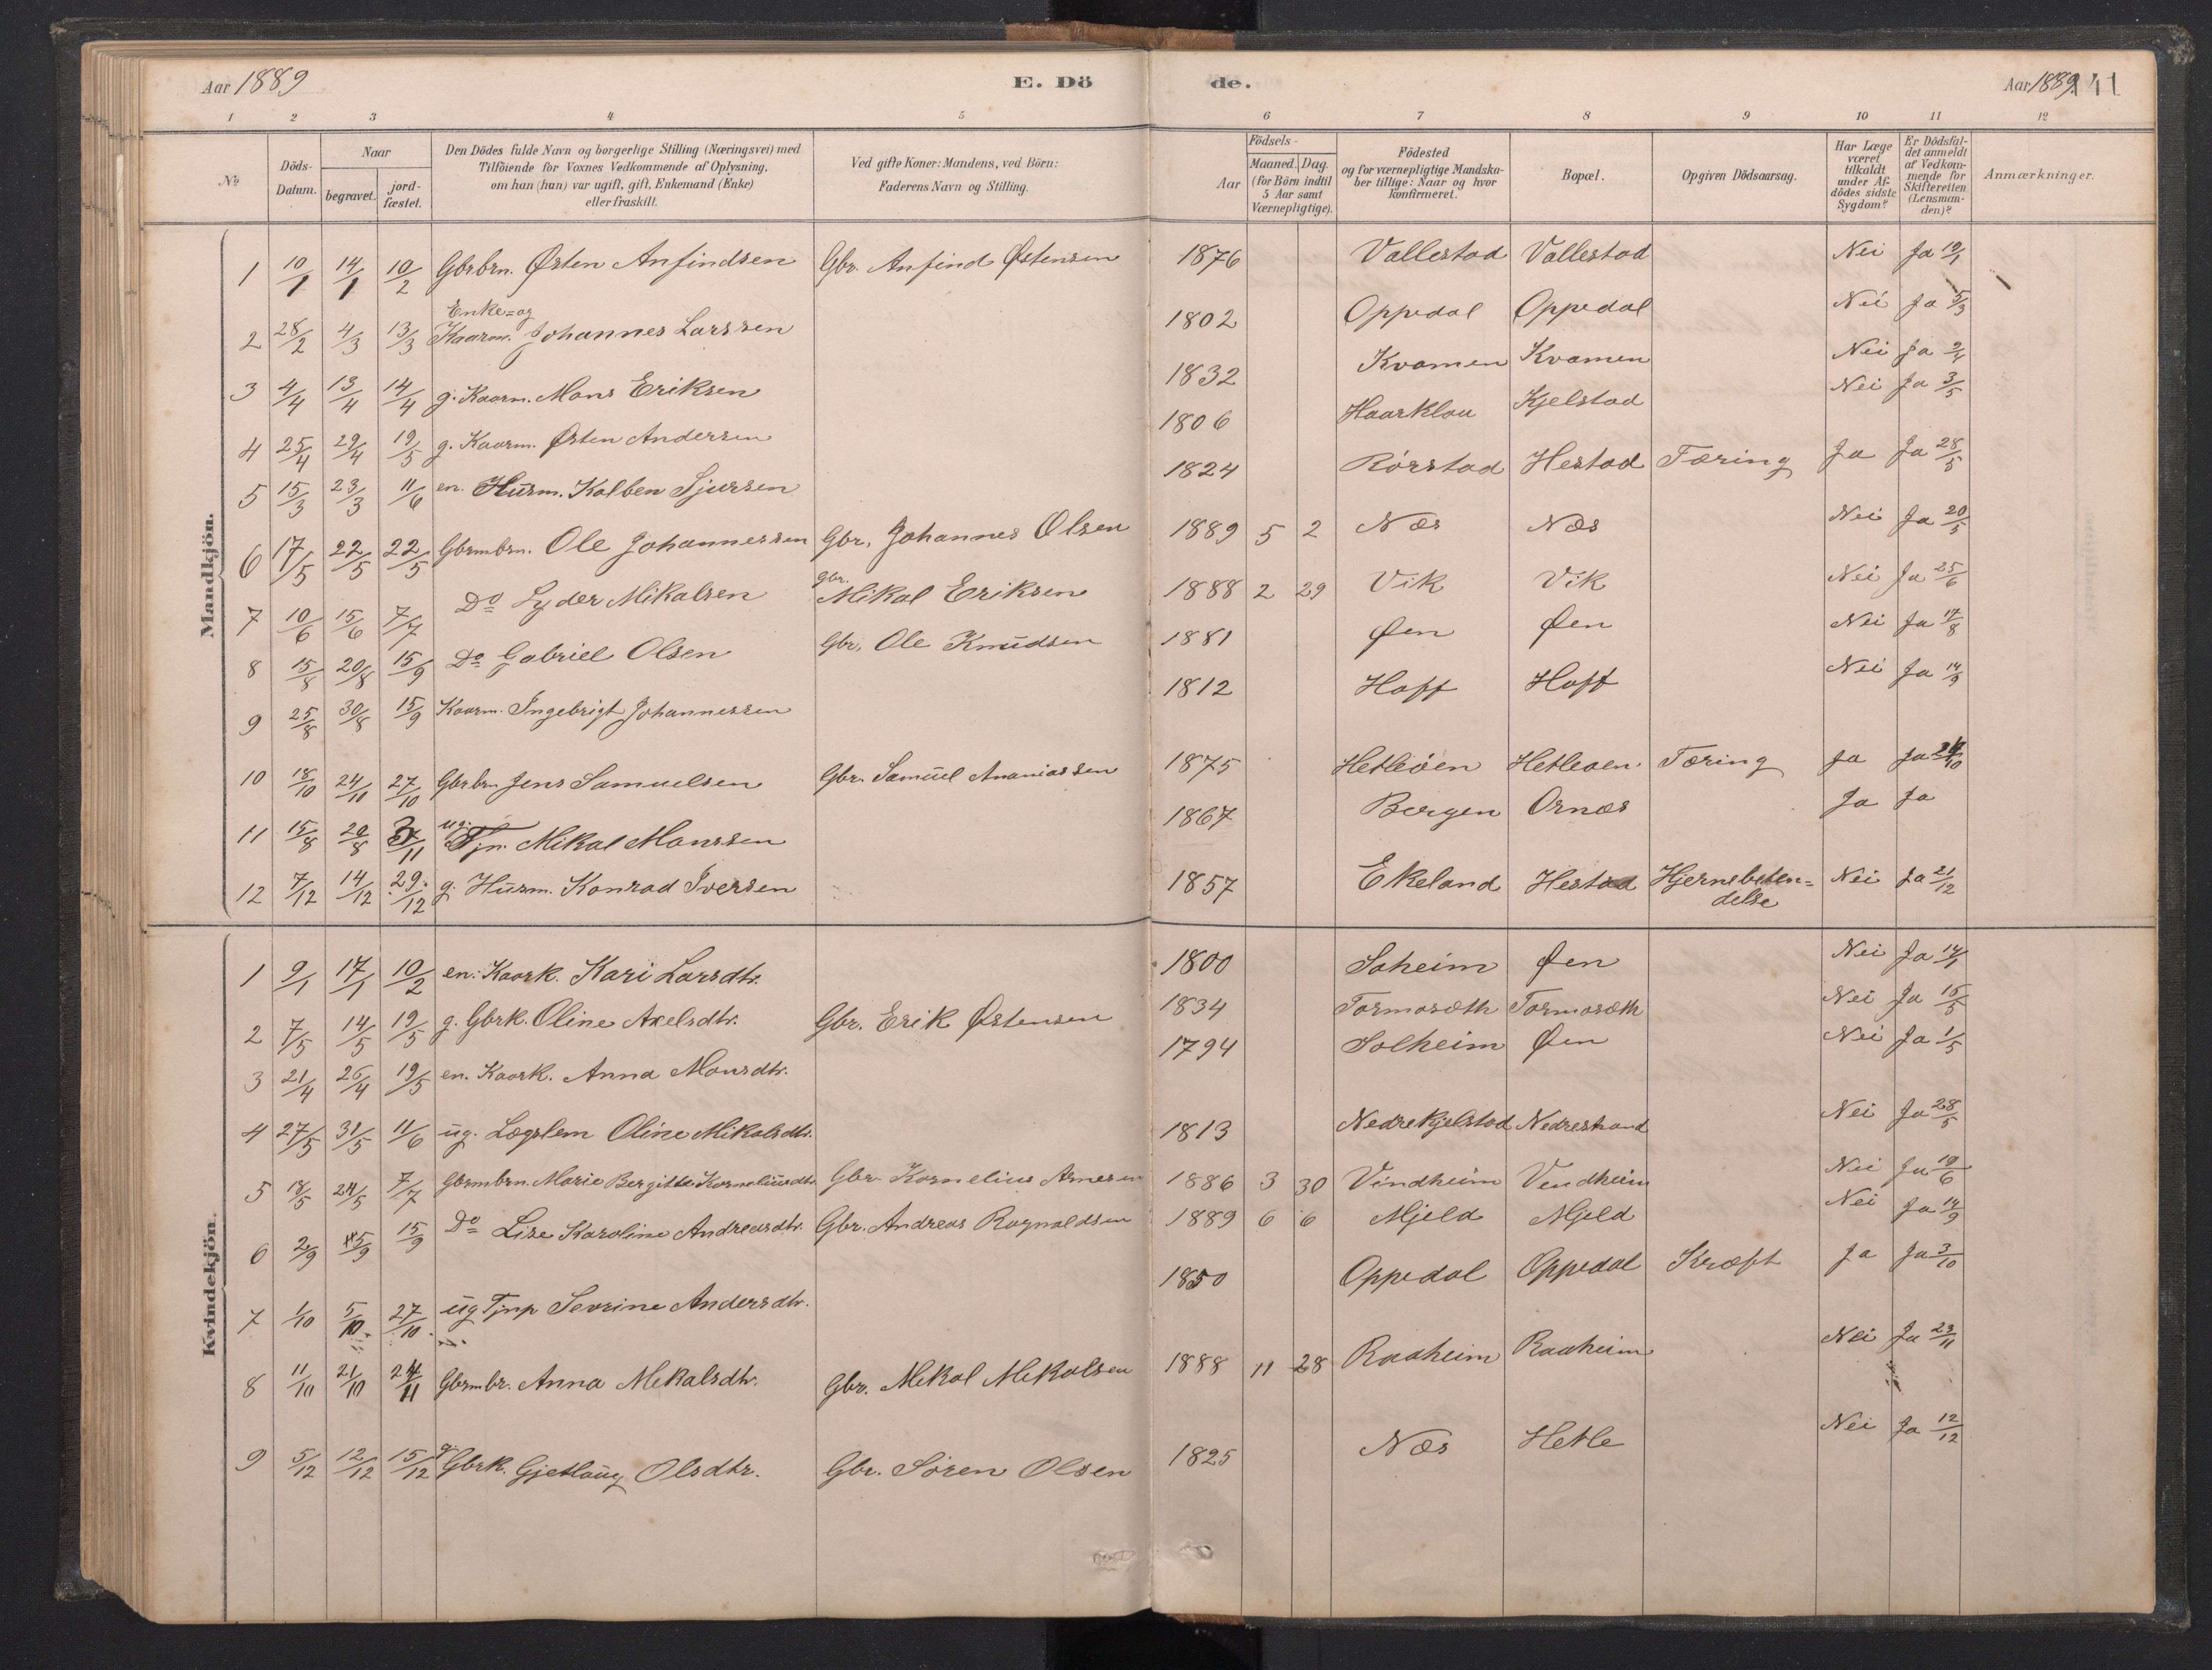 Aar 1889 E. Dö de. Aar 1889. 141
1 2 3 4 5 6 7 8 9 10 11 12
No Döds-Datum. Naar begravet. jordfæstet. Den Dödes fulde Navn og borgerlige Stilling (Næringsvei) med Tilföiende for Voxnes Vedkommende af Oplysning, om han (hun) var ugift, gift, Enkemand (Enke) eller fraskilt. Ved gifte Koner: Mandens, ved Börn: Faderens Navn og Stilling. Födsels- Aar Maaned. Dag. (for Börn indtil 5 Aar samt Værnepligtige). Födested og for værnepligtige Mandskaber tillige: Naar og hvor konfirmeret. Bopæl. Opgiven Dödsaarsag. Har Læge været tilkaldt under Afdödes sidste Sygdom? Er Dödsfaldet anmeldt af Vedkommende for Skifteretten (Lensmanden)? Anmærkninger.
Mandkjön.
1 10/1 14/1 10/2 Gbrbrn. Østen Anfindsen Gbr. Anfind Østensen 1876 Vallestad Vallestad Nei Ja 19/1
2 28/2 4/3 13/3 Enke= og Kaarm. Johannes Larssen 1802 Oppedal Oppedal Nei Ja 5/3
3 4/4 13/4 14/4 g. Kaarm. Mons Eriksen 1832 Kvamen Kvamen Nei Ja 9/4
4 25/4 29/4 19/5 g. Kaarm. Østen Andersen 1806 Haarklau Kjelstad Nei Ja 3/5
5 15/3 23/3 11/6 en. Husm. Kolben Sjursen 1824 Rörstad Hestad Tæring Ja Ja 28/5
6 17/5 22/5 22/5 Gbrmbrn. Ole Johannessen Gbr. Johannes Olsen 1889 5 2 Næs Næs Nei Ja 20/5
7 10/6 15/6 7/7 Do Lyder Mikalsen Gbr. Mikal Eriksen 1888 2 29 Vik Vik Nei Ja 25/6
8 15/8 20/8 15/9 Do Gabriel Olsen Gbr. Ole Knudsen 1881 Øen Øen Nei Ja 17/8
9 25/8 30/8 15/9 Kaarm. Ingebrigt Johannessen 1812 Hoff Hoff Nei Ja 14/9
10 18/10 24/10 27/10 Gbrbr. Jens Samuelsen Gbr. Samuel Ananiassen 1875 Hetleöen Hetleöen Tæring Ja Ja
11 15/8 20/8 ug. Tjn. Mikal Monssen 1867 Bergen Ornæs Ja Ja
12 7/12 14/12 29/12 g. Husm. Konrad Iversen 1857 Ekeland Hestad Hjernebeten=delse Nei Ja 21/12
Kvindekjön.
1 9/1 17/1 10/2 en. Kaark. Kari Larsdtr. 1800 Saheim Øen Nei Ja 14/1
2 7/5 14/5 19/5 g. Gbrk. Oline Axelsdtr. Gbr. Erik Østensen 1834 Tormosæth Tormosæth Nei Ja 15/5
3 21/4 26/4 19/5 en. Kaark. Anna Monsdtr. 1794 Solheim Øen Nei Ja 1/5
4 27/5 31/5 11/6 ug. Lægslem Oline Mikalsdtr. 1813 Nedrekjelstad Nedrestrand Nei Ja 28/5
5 18/5 24/5 7/7 Gbrmbrn. Marie Bergitte Korneliusdtr. Gbr. Kornelius Arnesen 1886 3 30 Vindheim Vindheim Nei Ja 19/6
6 2/9 5/9 15/9 Do Lise Karoline Andreasdtr. Gbr. Andreas Ragnaldsen 1889 6 6 Mjeld Mjeld Nei Ja 14/9
7 1/10 5/10 27/10 ug Tjnp Sevrine Andersdtr. 1850 Oppedal Oppedal Kræft Ja Ja 3/10
8 11/10 21/10 24/11 Gbrmbr. Anna Mikalsdtr. Gbr. Mikal Mikalsen 1888 11 28 Raaheim Raaheim Nei Ja 23/11
9 5/12 12/12 15/12 g. Gbrk. Gjetlaug Olsdtr. Gbr. Sören Olsen 1825 Næs Hetle Nei Ja 12/12